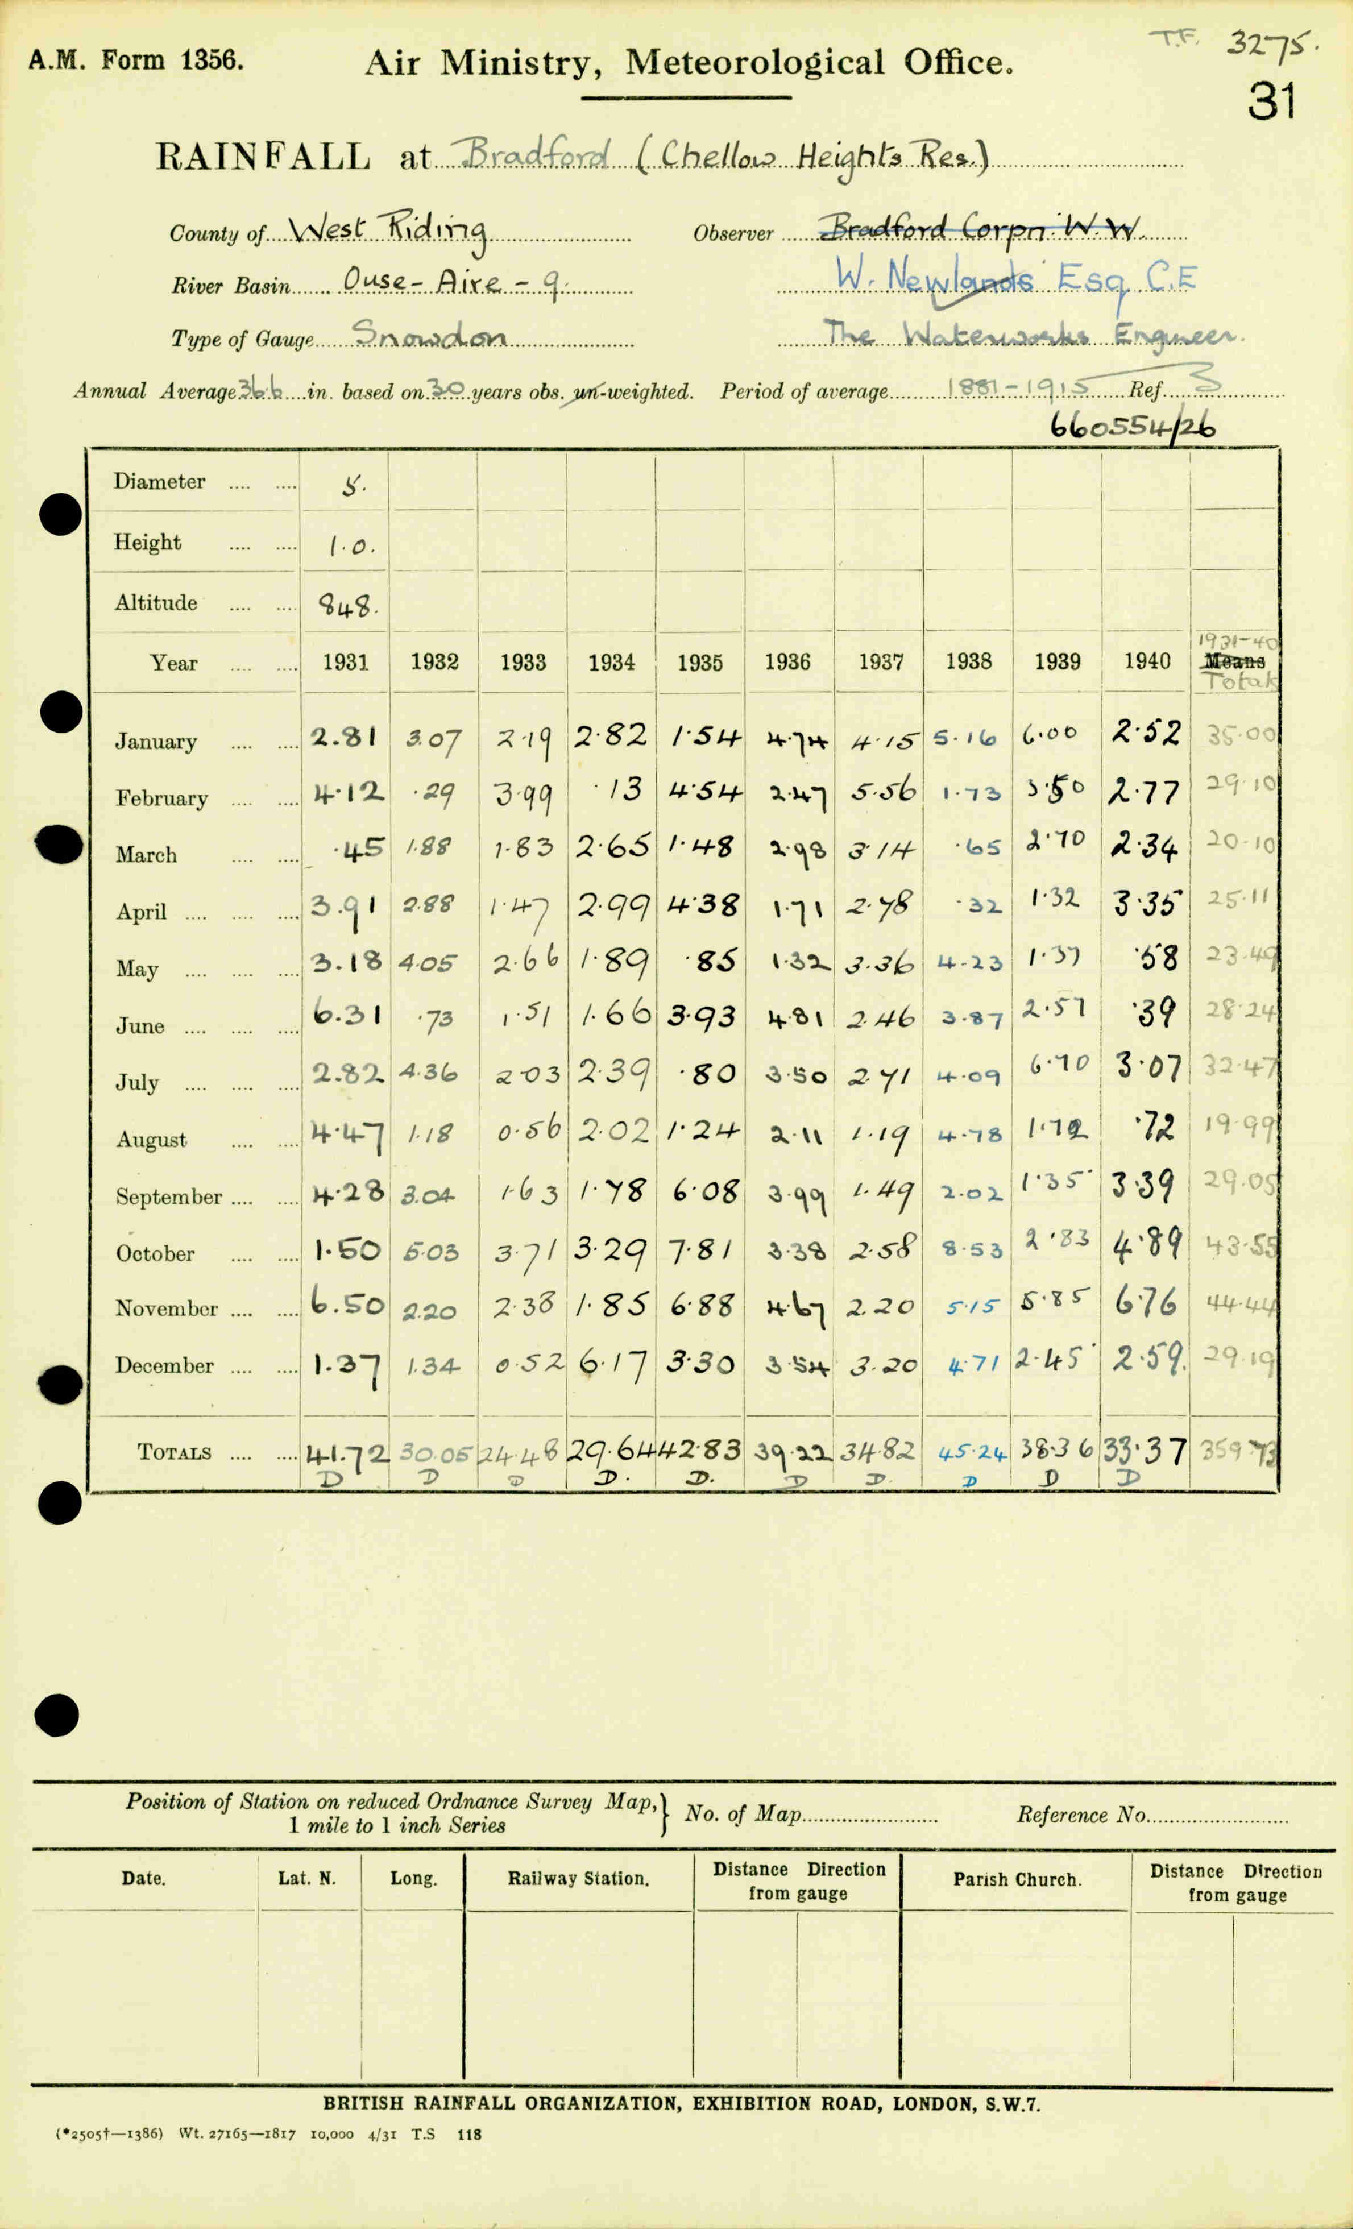 T.F. 3275.
A.M. Form 1356. Air Ministry, Meteorological Office.
31
RAINFALL at Bradford (Chellow Heights Res.)
County of West Riding Observer Bradford Corpn: W.W.
River Basin Ouse - Aire - 9. W. Newlands Esq C.E
Type of Gauge Snowdon The Waterworks Engineer.
Annual Average 36.6 in. based on 30 years obs. un-weighted. Period of average 1881-1915 Ref. 3
660554/26
Diameter 5.
Height 1.0.
Altitude 848.
Year 1931 1932 1933 1934 1935 1936 1937 1938 1939 1940 1931-40 Means Totals
January 2.81 3.07 2.19 2.82 1.54 4.74 4.15 5.16 6.00 2.52 35.00
February 4.12 .29 3.99 .13 4.54 2.47 5.56 1.73 3.50 2.77 29.10
March .45 1.88 1.83 2.65 1.48 2.98 3.14 .65 2.70 2.34 20.10
April 3.91 2.88 1.47 2.99 4.38 1.71 2.78 .32 1.32 3.35 25.11
May 3.18 4.05 2.66 1.89 .85 1.32 3.36 4.23 1.37 .58 23.49
June 6.31 .73 1.51 1.66 3.93 4.81 2.46 3.87 2.57 .39 28.24
July 2.82 4.36 2.03 2.39 .80 3.50 2.71 4.09 6.70 3.07 32.47
August 4.47 1.18 0.56 2.02 1.24 2.11 1.19 4.78 1.72 .72 19.99
September 4.28 3.04 1.63 1.78 6.08 3.99 1.49 2.02 1.35 3.39 29.05
October 1.50 5.03 3.71 3.29 7.81 3.38 2.58 8.53 2.83 4.89 43.55
November 6.50 2.20 2.38 1.85 6.88 4.67 2.20 5.15 5.85 6.76 44.44
December 1.37 1.34 0.52 6.17 3.30 3.54 3.20 4.71 2.45 2.59. 29.19
TOTALS 41.72 30.05 24.48 29.64 42.83 39.22 34.82 45.24 38.36 33.37 359.73
D D D D. D. D D. D D D
Position of Station on reduced Ordnance Survey Map, } No. of Map Reference No.
1 mile to 1 inch Series
Date. Lat. N. Long. Railway Station. Distance Direction from gauge Parish Church. Distance Direction from gauge
BRITISH RAINFALL ORGANIZATION, EXHIBITION ROAD, LONDON, S.W.7.
(*2505†—1386) Wt. 27165—1817 10,000 4/31 T.S 118